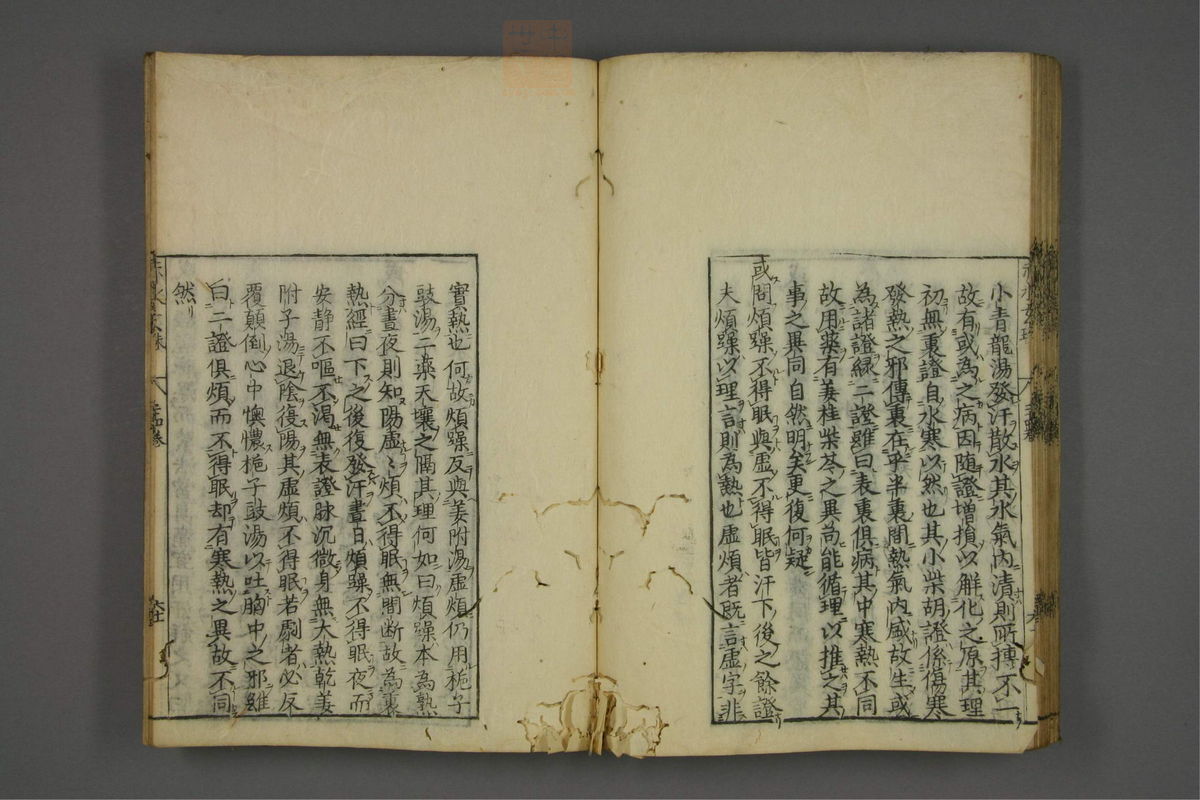 小青龍湯發汗散水其水氣内漬則所摶不一
故有或為之病因随證増損以解化之原其理
初無裏證自水寒以然也其小柴胡證係傷寒
發熱之邪傳裏在乎半裏間熱氣内甚故生或
為諸證緑二證雖曰表裏俱病其中寒熱不同
故用藥有姜桂柴芩之異尚能循理以推之其
事之異同自然明矣更復何疑
或問煩躁不得眠與虚不得眠皆汗下後之餘證
夫煩躁以理言則為熱也虚煩者既言虚字非
實熱也何故煩躁反與姜附湯虚煩仍用梔子
豉湯二藥天壤之隔其理何如曰煩躁本為熱
分晝夜則知陽虚〻煩不得眠無間断故為裏
熱經曰下之後復發汗晝日煩躁不得眠夜而
安静不嘔不渴無表證脉沉微身無大熱乾姜
附子湯退陰復陽其虚煩不得眠若劇者必反
覆顛倒心中懊憹梔子豉湯以吐胸中之邪雖
曰二證俱煩而不得眠却有寒熱之異故不同
然